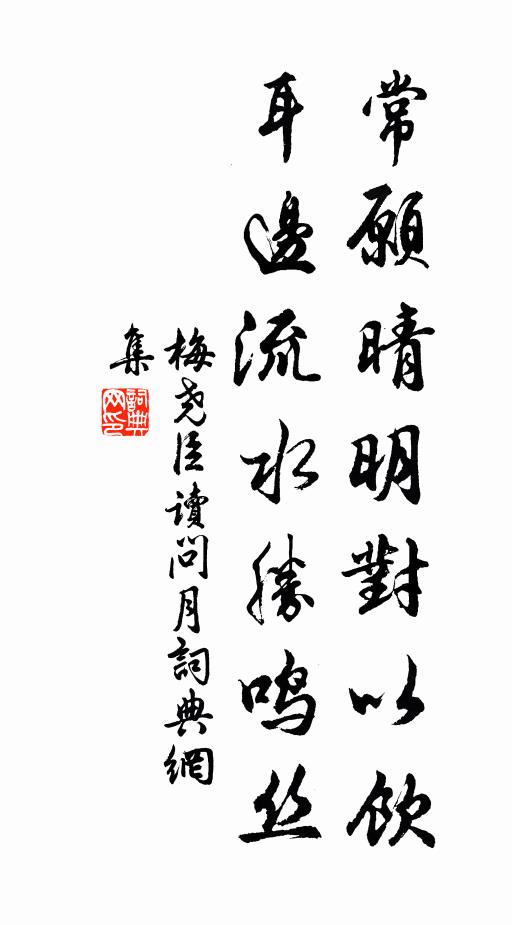 常願晴明對以飲
耳邊流水勝鳴丝
梅尧臣讀問月詞典網
集
詞典
网印